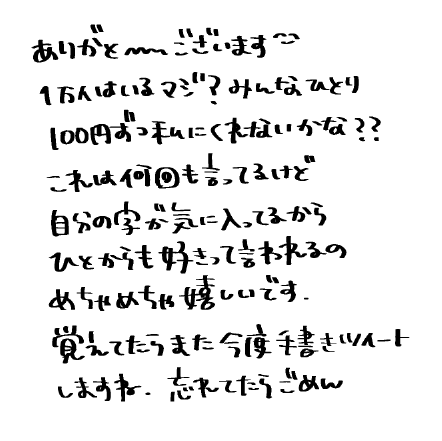 ありがと〰ございます
1万人はいるマジ?みんなひとり
100円ずつ私にくれないかな??
これは何回も言ってるけど
自分の字が気に入ってるから
ひとからも好きって言われるの
めちゃめちゃ嬉しいです.
覚えてたらまた今度手書きツイート
しますね. 忘れてたらごめん